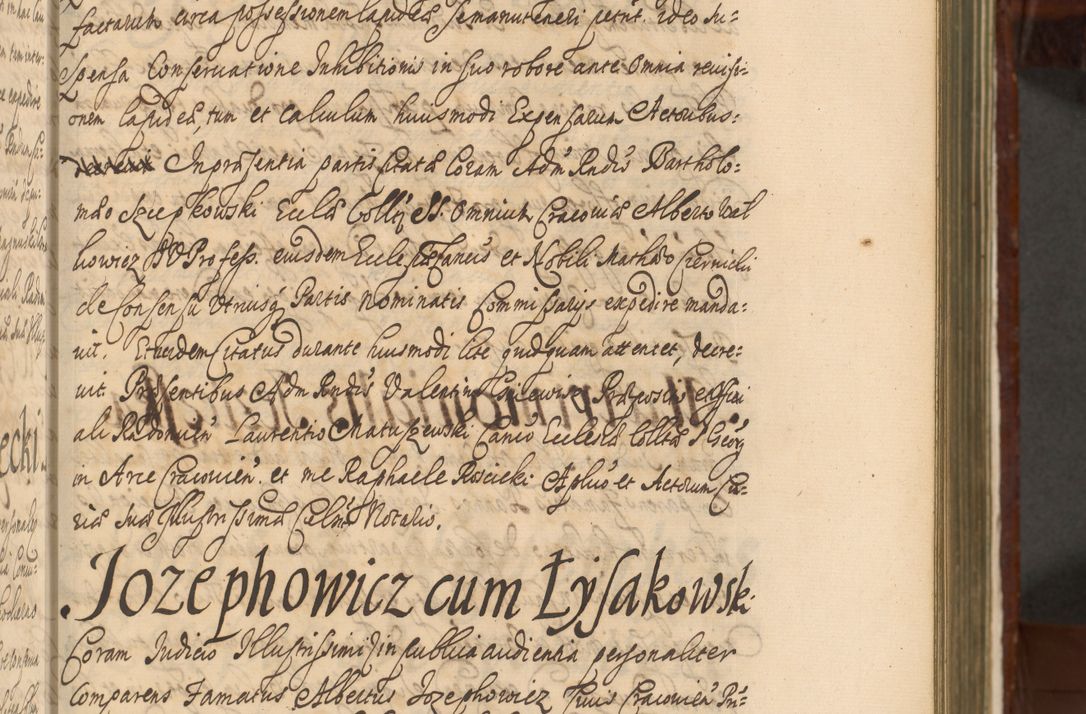 factarum circa possessionem lapideæ se manuteneri petijt. ideo su-
spensa Conservatione Inhibitionis in suo robore ante omnia revisi-
onem lapideæ, tum et calculum huiusmodi Expensarum Actoribus-
In præsentia partis citatæ Coram Adm Rndis Bartholo-
mæo Szczepkowski Eccłæ Collęg SS. Omnium Cracoviæ Alberto Wal
kowicz Profess. eiusdem Ecclesiæ Caneis et Nobili Mathæo Czernicki
de Consensu utriusq Partis nominatis Commissarijs expedire manda-
vit. Et ne idem Citatus durante huiusmodi lite quidquam attentet, decre-
vit Præsentibus Adm Rndis Valentino Præposito Offici
ali Radomien Laurentio Matuszewski Canco Ecclesiæ Colltæ S Georg
in Arce Cracovien. et me Raphaele Rościcki Aplico et Actorum Cu-
riæ Suæ Illustrissimæ Celsnis Notario.
Jozephowicz cum Łysakowski
Coram Judicio Illustrissimi in publica audientia personaliter
Comparens Famatus Albertus Jozephowicz Civis Cracovien Prę-